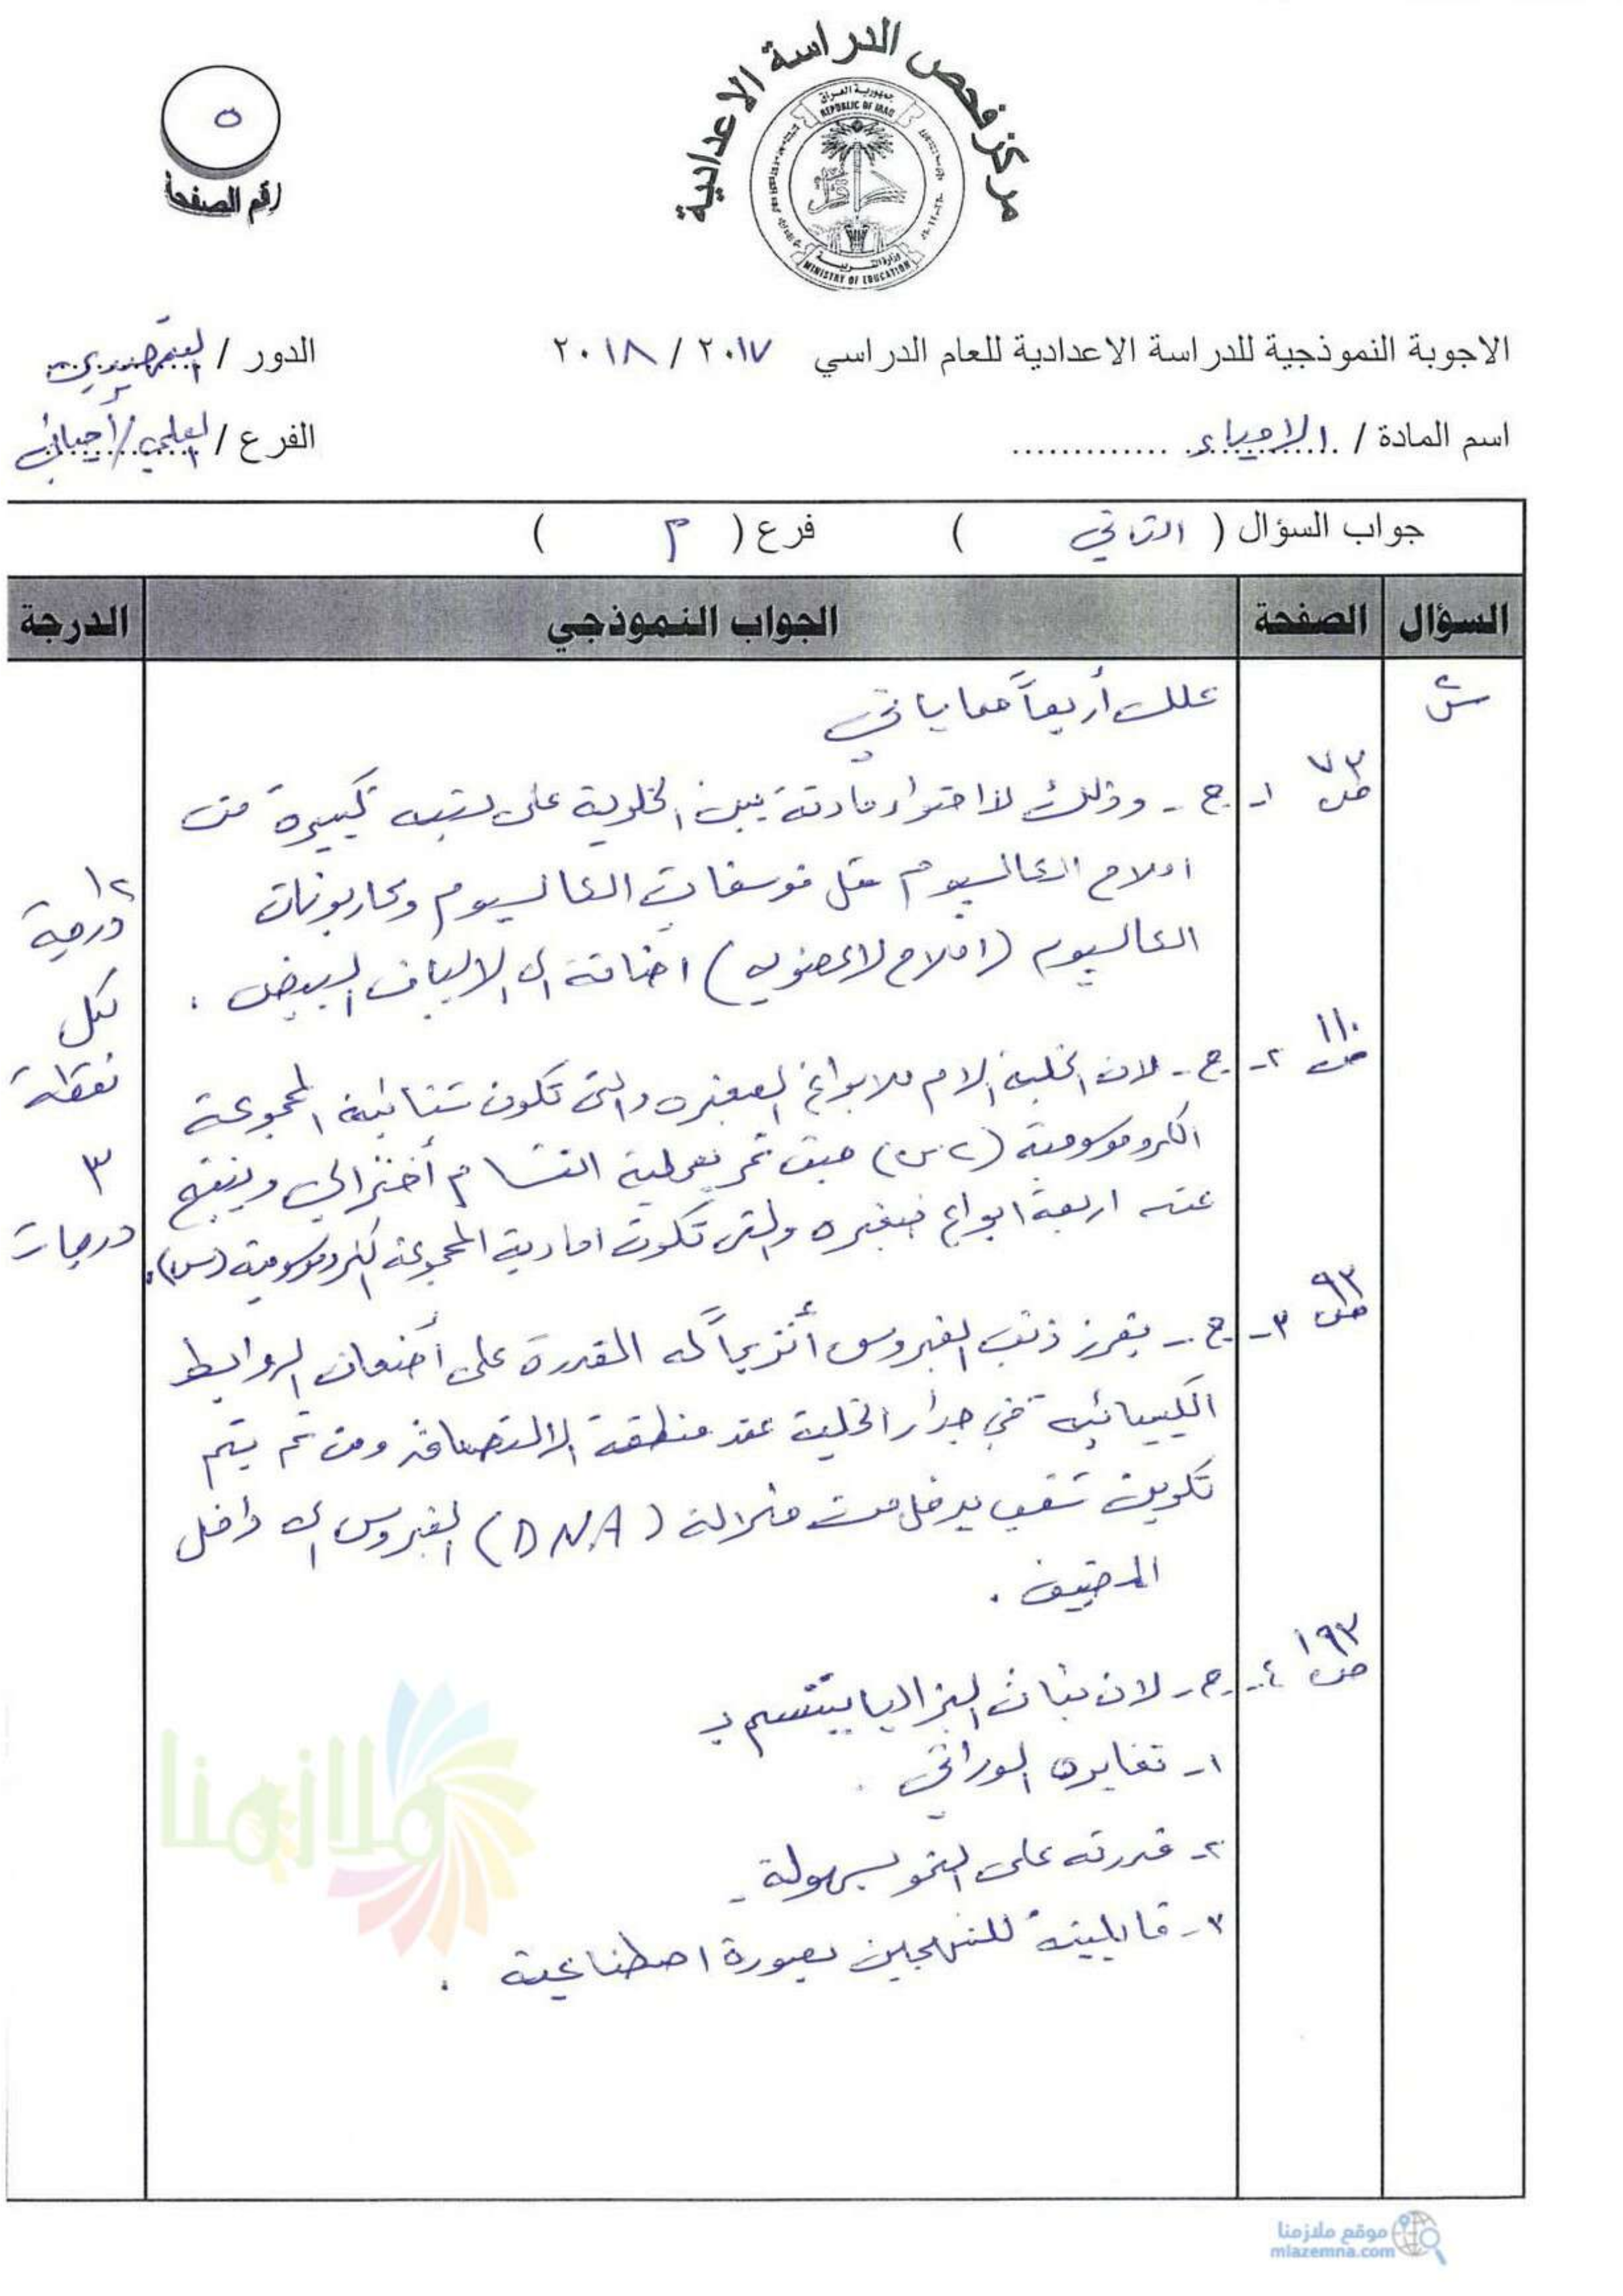 مركز فحص الدراسة الاعدادية
جمهورية العراق
REPUBLIC OF IRAQ
وزارة التربية
MINISTRY OF EDUCATION
٥
رقم الصفحة
الاجوبة النموذجية للدراسة الاعدادية للعام الدراسي ٢٠١٧ / ٢٠١٨
الدور / التمهيدي
اسم المادة / الاحياء
الفرع / العلمي/أحيائي
جواب السؤال ( الثاني ) فرع ( P )
السؤال الصفحة الجواب النموذجي الدرجة
علل أربعاً مما يأتي
ص ٧٣ ١- ج - وذلك لاحتواء مادته بين الخلوية على نسبة كبيرة من
املاح الكالسيوم مثل فوسفات الكالسيوم وكاربونات
الكالسيوم (املاح لاعضويه) اضافة الى الالياف البيض .
١٢ درجة
لكل نقطة
٣ درجات
ص ١١٠ ٢- ج - لان الخلية الام للابواغ الصغيره والتي تكون ثنائية المجموعة
الكروموسومية (٢س) حيث تمر بعملية انقسام أختزالي وينتج
عنه اربعة ابواغ صغيره والتي تكون احادية المجموعة الكروموسومية (س).
ص ٩٣ ٣- ج - يفرز ذنب الفيروس أنزيماً له المقدرة على أضعاف الروابط
الكيميائيه في جدار الخلية عند منطقة الالتصاق ومن ثم يتم
تكوين ثقب يدخل من خلاله (DNA) الفيروس الى داخل
المضيف .
ص ١٩٣ ٤- ج - لان نبات البزاليا يتسم بـ
١- تغايره الوراثي .
٢- قدرته على النمو بسهولة -
٣- قابليته للتهجين بصورة اصطناعية .
ملازمنا
موقع ملازمنا
mlazemna.com